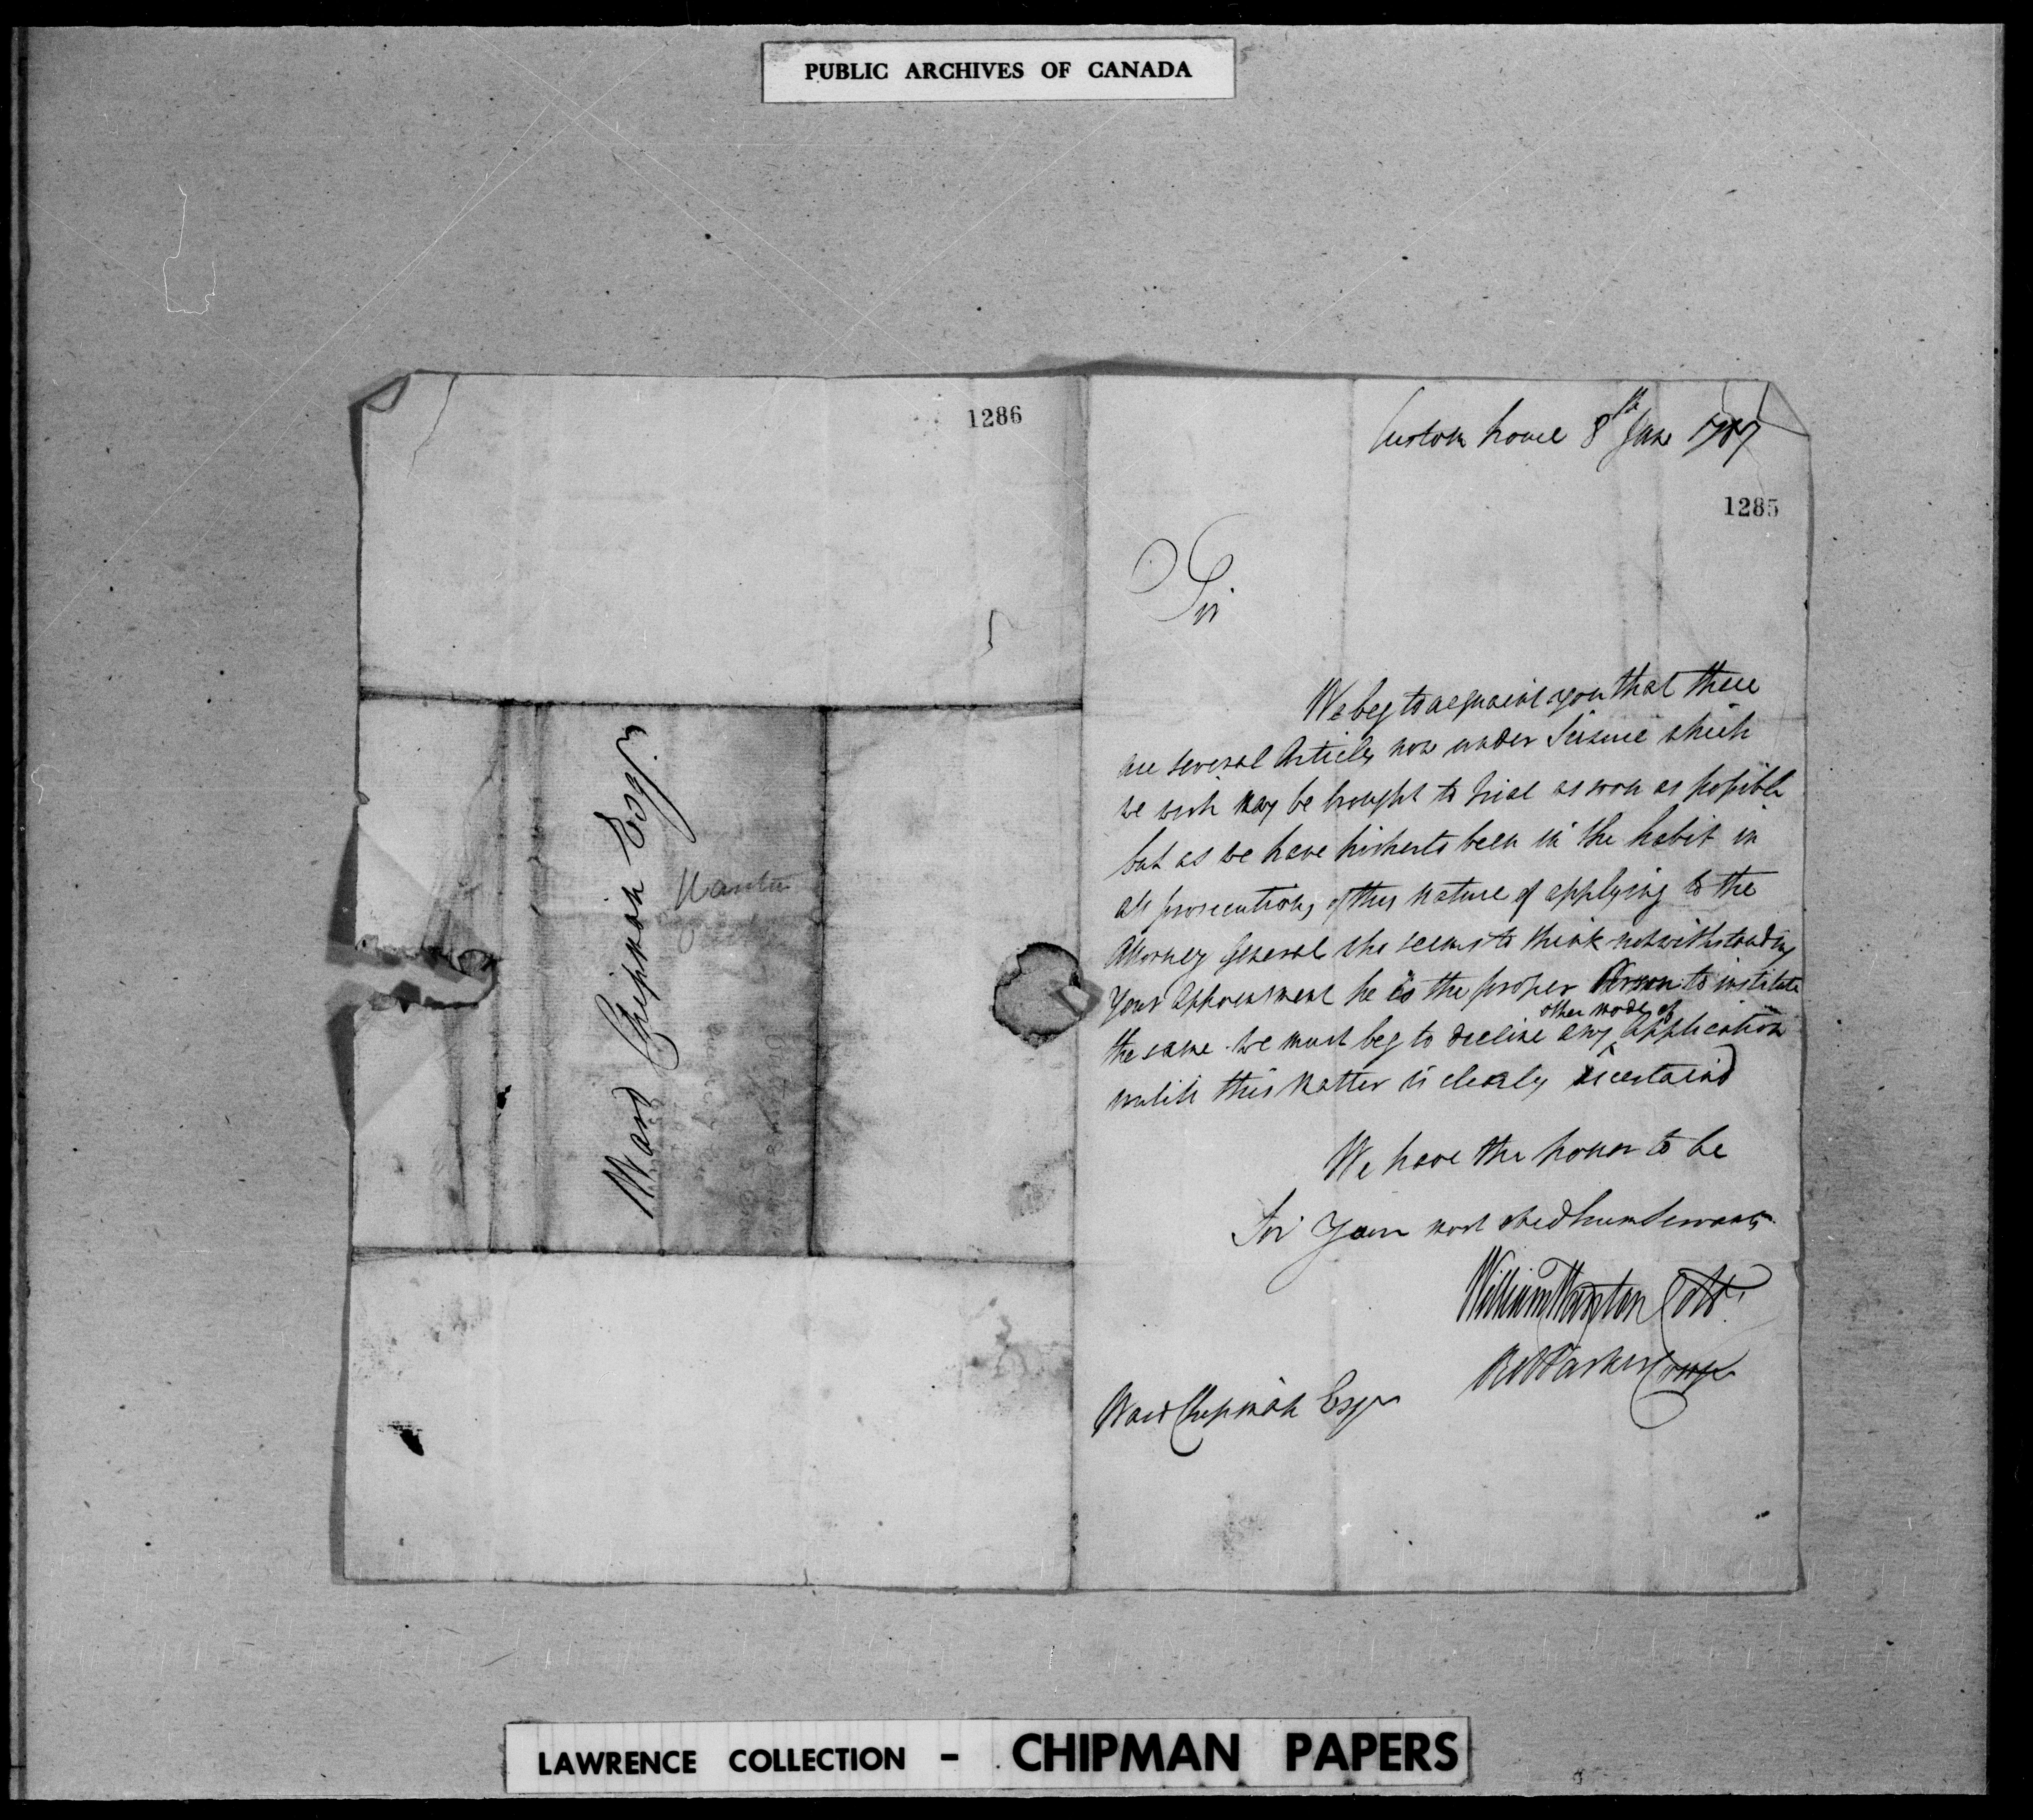 PUBLIC ARCHIVES OF CANADA
1286
Ward Chipman Esqr.
Custom house 8th Jan 1787
1285
Sir
We beg to acquaint you that there
are several Articles now under Seizure which
we wish may be brought to trial as soon as possible
but as we have hitherto been in the habit in
all prosecutions of this nature of applying to the
Attorney General who seems to think notwithstanding
your appointment he is the proper Person to institute
the same we must beg to decline any other mode of application
untill this matter is clearly ascertaind
We have the honor to be
Sir Your most obed hum Servants
William Wanton Collr.
Rt Parker Compr
Ward Chipman Esqr
LAWRENCE COLLECTION - CHIPMAN PAPERS